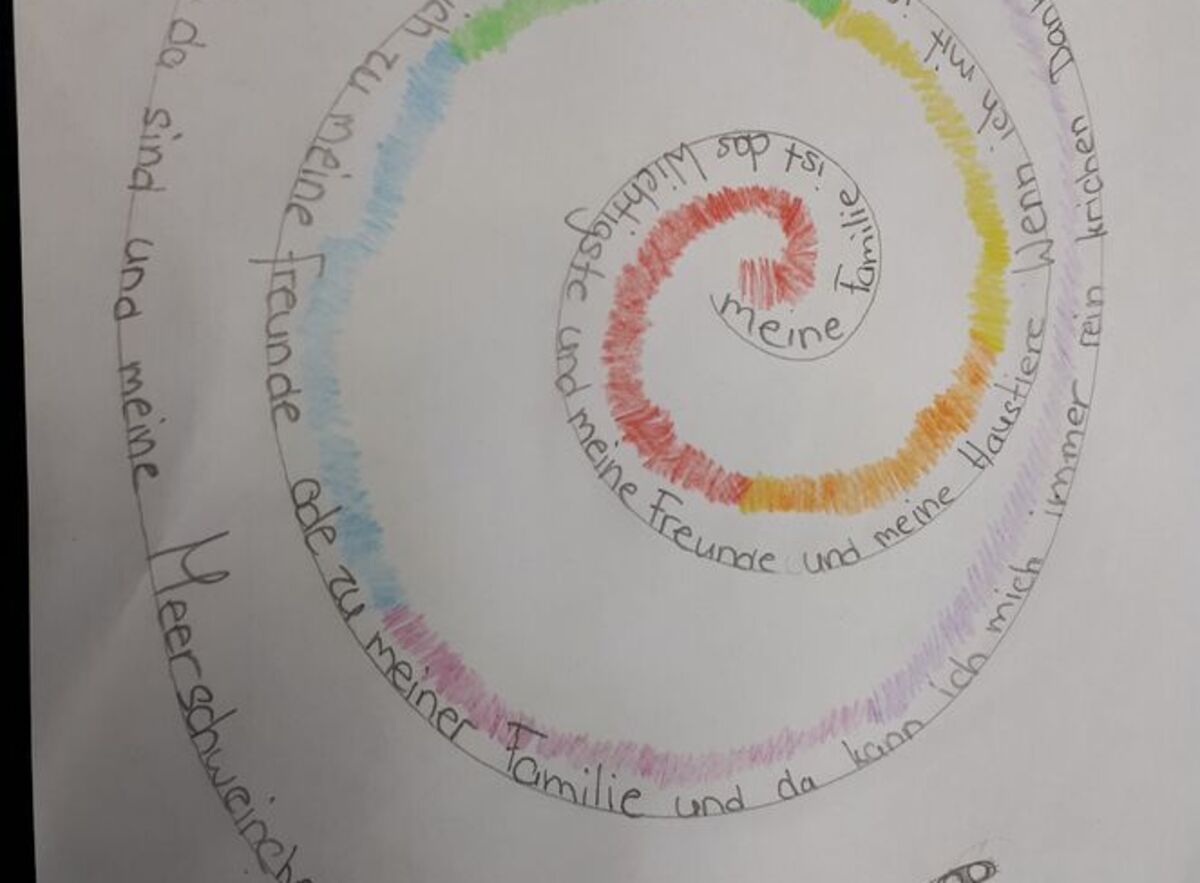 meine Familie ist das Wichtigste und meine Freunde und meine Haustiere Wenn ich mit
ich zu meine freunde ode zu meiner Familie und da kann ich mich immer rein krichen Dank
da sind und meine Meerschweinche